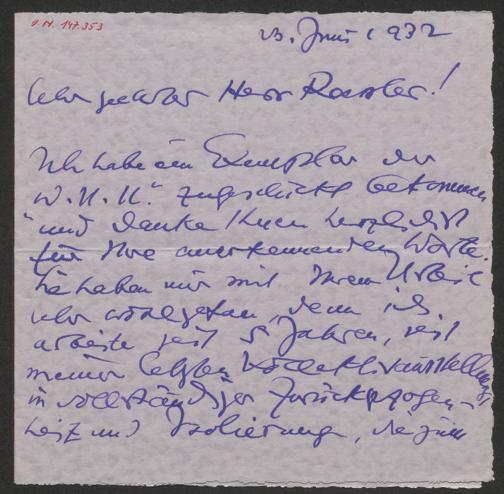 I.N. 147.353
23. Juni 1932
Sehr geehrter Herr Roessler!
Ich habe ein Exemplar der
"W.N.N." zugeschickt bekommen
und danke Ihnen herzlichst
für Ihre anerkennenden Worte.
Sie haben mir mit Ihrem Urteil
sehr wohlgetan, denn ich
arbeite seit 5 Jahren, seit
meiner letzten Kollektivausstellung,
in vollständiger Zurückgezogen-
heit und Isolierung, die zum